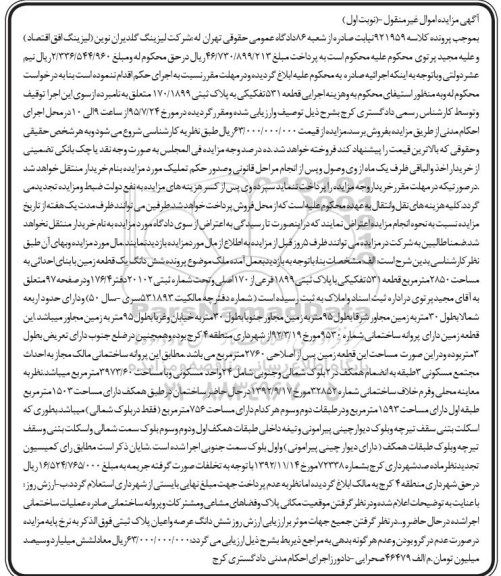 آگهی مزایده اموال غیر منقول -(نوبت اول)
بموجب پرونده کلاسه ۹۲۱۹۵۹نیابت صادره از شعبه ۱۸۶دادگاه عمومی حقوقی تهران له:شرکت لیزینگ گلدیران نوین (لیزینگ افق اقتصاد)
و علیه مجید پرتوی محکوم علیه محکوم است به پرداخت مبلغ ۴۶/۷۳۰/۸۹۹/۲۱۳ریال در حق محکوم له ومبلغ ۲/۳۳۶/۵۴۴/۹۶۰ ریال نیم
عشر دولتی وباتوجه به اینکه اجرائیه صادره به محکوم علیه ابلاغ گردیده ودر مهلت مقرر نسبت به اجرای حکم اقدام ننموده است بنابه درخواست
محکوم له وبه منظور استیفای محکوم به وهزینه اجرایی قطعه ۵۳۱تفکیکی به پلاک ثبتی ۱۷۰/۱۸۹۹ متعلق به نامبرده از سوی این اجرا توقیف
و توسط کارشناس رسمی دادگستری کرج بشرح ذیل توصیف وارزیابی شده ومقرر گردیده در مورخ ۹۵/۷/۲۴از ساعت ۹الی ۱۰ در محل اجرای
احکام مدنی از طریق مزایده بفروش برسد.مزایده از قیمت ۶۳/۰۰۰/۰۰۰/۰۰۰ریال طبق نظریه کارشناسی شروع می شود وبه هر شخص حقیقی
وحقوقی که بالاترین قیمت را پیشنهاد کند فروخته خواهد شد.ده درصد وجه مزایده فی المجلس به صورت وجه نقد یا چک بانکی تضمینی
از خریدار اخذ والباقی ظرف یک ماه از وی وصول وپس از انجام مراحل قانونی وصدور حکم تملیک مورد مزایده بنام خریدار منتقل خواهد شد
در صورتیکه در مهلت مقرر خریدار وجه مزایده را پرداخت ننماید سپرده وی پس از کسر هزینه های مزایده به نفع دولت ضبط ومزایده تجدید می
گردد.کلیه هزینه های نقل وانتقال به عهده محکوم علیه است که از محل فروش پرداخت خواهد شد.طرفین می توانند ظرف مدت یک هفته از تاریخ
مزایده نسبت به نحوه انجام مزایده اعتراض نمایند که در اینصورت تا رسیدگی به اعتراض از سوی دادگاه مورد مزایده به نام خریدار منتقل نخواهد
شد.ضمنا طالبین به شرکت در مزایده می توانند ظرف ۵روز قبل از مزایده به اطلاع از مال مورد مزایده بازدید نمایند.مال مورد مزایده وبهای آن طبق
نظر کارشناسی بدین شرح است:الف-مشخصات:بنا باتوجه به بازدید بعمل آمده ملک موضوع پرونده شش دانگ یک قطعه زمین بابنای احداثی به
مساحت ۲۸۵۰مترمربع قطعه ۵۳۱تفکیکی با پلاک ثبتی ۱۸۹۹فرعی از ۱۷۰اصلی وتحت شماره ثبتی ۲۰۱۰۲دفتر ۱۷۶/۴در صفحه ۹۷متعلق
به آقای مجید پرتوی در اداره ثبت اسناد واملاک به ثبت رسیده است (شماره دفترچه مالکیت ۵۳۱۸۹۳سری –سال ۵۰) ودارای حدود اربعه
شمالا بطول ۳۰متر به زمین مجاور شرقا بطول ۹۵متر به زمین مجاور جنوبا بطول ۳۰متر به خیابان وغربا بطول ۹۵متر به زمین مجاور میباشد.این
قطعه زمین دارای پروانه ساختمانی شماره ۹۵۳۰مورخ ۹۲/۳/۱۹از شهرداری منطقه ۴ کرج بوده وهمچنین در ضلع جنوب دارای تعریض بطول
۳متر بوده ودر این صورت مساحت این قطعه زمین پس از اصلاحی ۲۷۶۰ مترمربع می باشد.مطابق این پروانه ساختمانی مالک مجاز به احداث
مجتمع مسکونی ۳طبقه به انضمام همکف در ۲بلوک شمالی وجنوبی شامل ۲۴واحد مسکونی وبا مساحت ۳۹۷۳/۶۰مترمربع میباشد.نظر به
معاینه محلی وفرم خلاف ساختمانی شماره ۳۲۸۵۲مورخ ۱۳۹۲/۹/۱۷در حال حاضر ساختمان در طبق همکف دارای مساحت ۱۵۰۳مترمربع
طبقه اول دارای مساحت ۱۵۹۳مترمربع ودر طبقات دوم وسوم هر کدام دارای مساحت ۷۵۶مترمربع (فقط در بلوک شمالی) میباشد.بطوری که
اسکلت بتنی سقف تیرچه وبلوک دیوار چینی پیرامونی وتیغه داخلی طبقات همکف اول ودوم وسوم بلوک سمت شمالی واسکلت بتنی وسقف
تیرچه وبلوک طبقات همکف (دارای دیوار چینی پیرامونی) واول بلوک سمت جنوبی اجرا شده است.شایان ذکر است مطابق رای کمیسیون
تجدیدنظر ماده صد شهرداری کرج بشماره ۷۲۳۳۸مورخ ۱۳۹۲/۱۱/۱۴با توجه به تخلفات صورت گرفته جریمه به مبلغ ۱۶/۵۲۴/۷۶۵/۰۰۰ ریال
در حق شهرداری منطقه ۴ کرج به مالک ابلاغ گردیده اما نظر به عدم پرداخت جهت مبلغ نهایی بایستی از شهرداری استعلام گردد.ب-ارزش روز:
با عنایت به توضیحات اعلام شده ودر نظر گرفتن موقعیت مکانی پلاک وفضاهای مشاعی ومشترکات وپروانه ساختمانی صادره عملیات ساختمانی
اجرا شده در حال حاضر و..در نظر گرفتن جمیع جهات موثر بر ارزیابی ارزش روز شش دانگ عرصه واعیان پلاک ثبتی فوق الذکر به نرخ پایه مزایده
در صورت عدم در گرو بودن وعدم هر گونه بدهی به مراجع ذیربط بشرح ذیل ارزیابی می گردد:۶۳/۰۰۰/۰۰۰/۰۰۰ریال معادل شش میلیارد وسیصد
میلیون تومان.م/الف ۴۶۴۷۹صحرایی -دادورز اجرای احکام مدنی دادگستری کرج